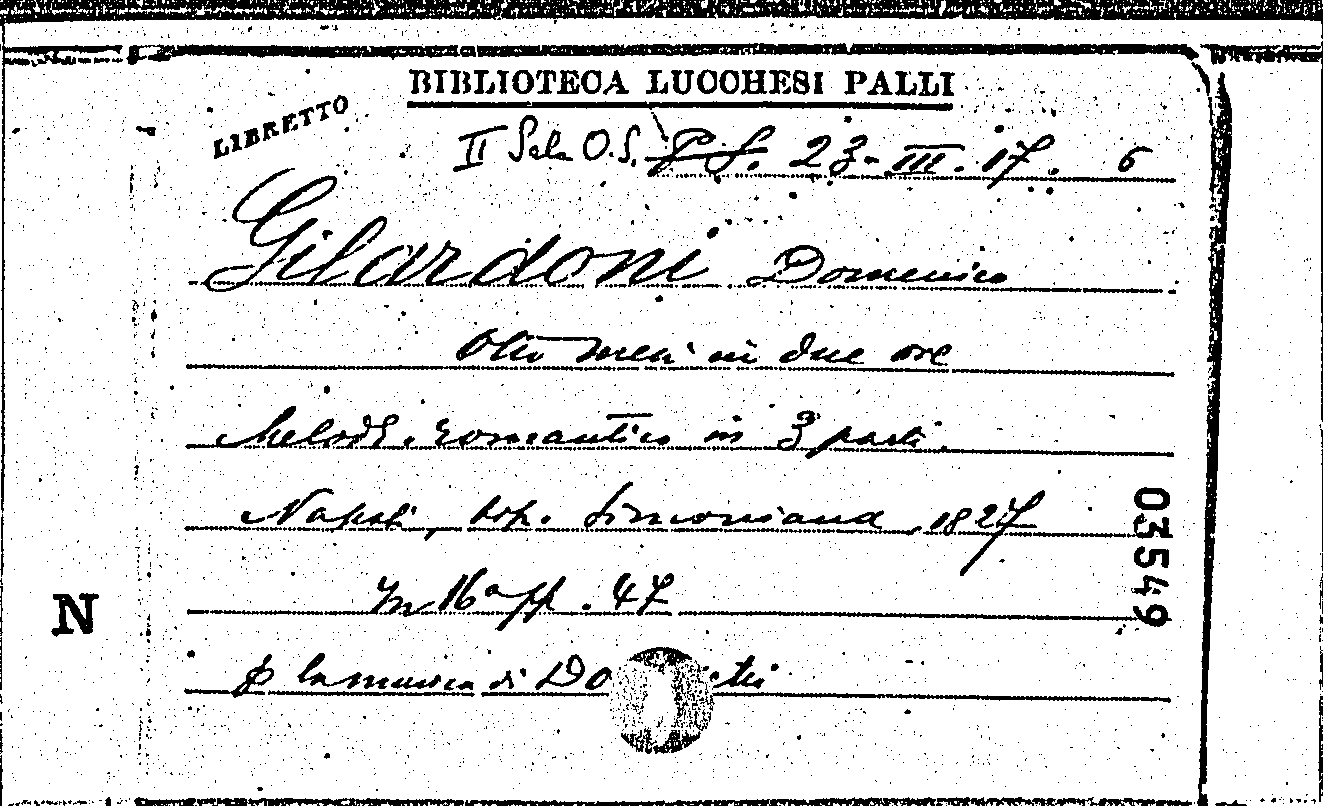 BIBLIOTECA LUCCHESI PALLI
LIBRETTO
II Sala O.S. P.S. 23-III.17. 6
Gilardoni Domenico
Otto mesi in due ore
Melodr. romantico in 3 parti.
Napoli, tip. Simoniana 1827
In 16° pp. 47
la musica di Do etti
03549
N